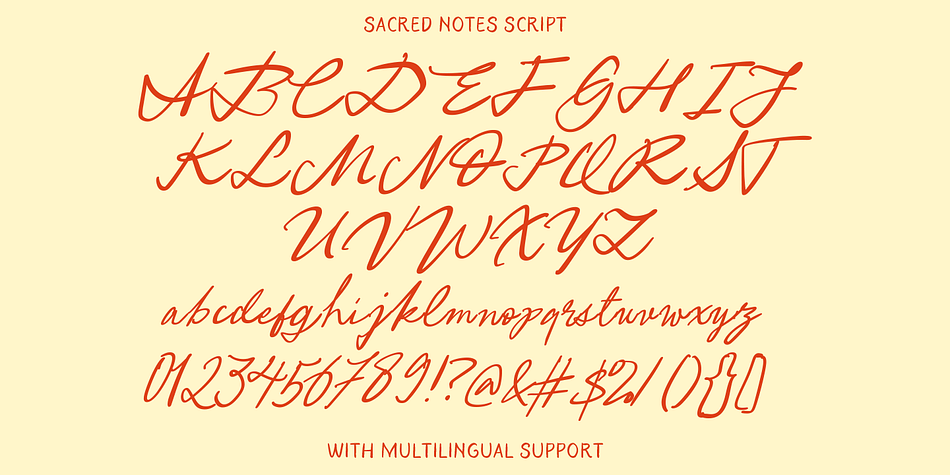 SACRED NOTES SCRIPT
ABCDEFGHIJ
KLMNOPQRST
UVWXYZ
abcdefghijklmnopqrstuvwxyz
0123456789!?@&#$%/(){}[]
WITH MULTILINGUAL SUPPORT